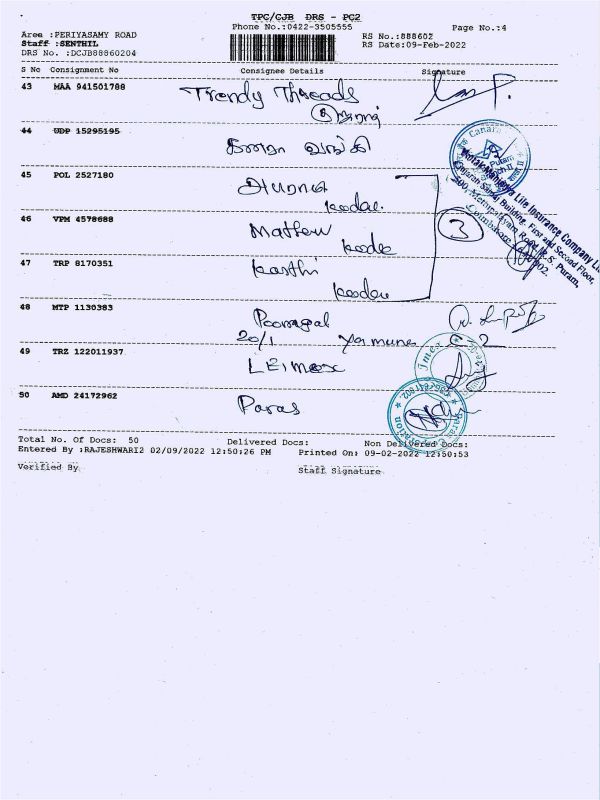 TPC/CJB DRS - PC2
Phone No.:0422-3505555
Page No.:4
Aree :PERIYASAMY ROAD
Staff :SENTHIL
DRS No. :DCJB88860204
RS No.:888602
RS Date:09-Feb-2022
S No Consignment No Consignee Details Signature
43 MAA 941501788 Trendy Threads
44 UDP 15295195 கனரா வங்கி
45 POL 2527180
46 VPM 4578688 Mathew
3
47 TRP 8170351 Karthi
48 MTP 1130383
20/1 Yamuna
49 TRZ 122011937
50 AMD 24172962 Paras
Canara
Puram
Kotak Mahindra Life Insurance Company
Gujaran Samaj Building, First and Second Floor,
Mettupalayam Road, R.S. Puram,
Coimbatore
Total No. Of Docs: 50 Delivered Docs: Non Delivered Docs:
Entered By :RAJESHWARI2 02/09/2022 12:50:26 PM Printed On: 09-02-2022 12:50:53
Verified By Staff Signature